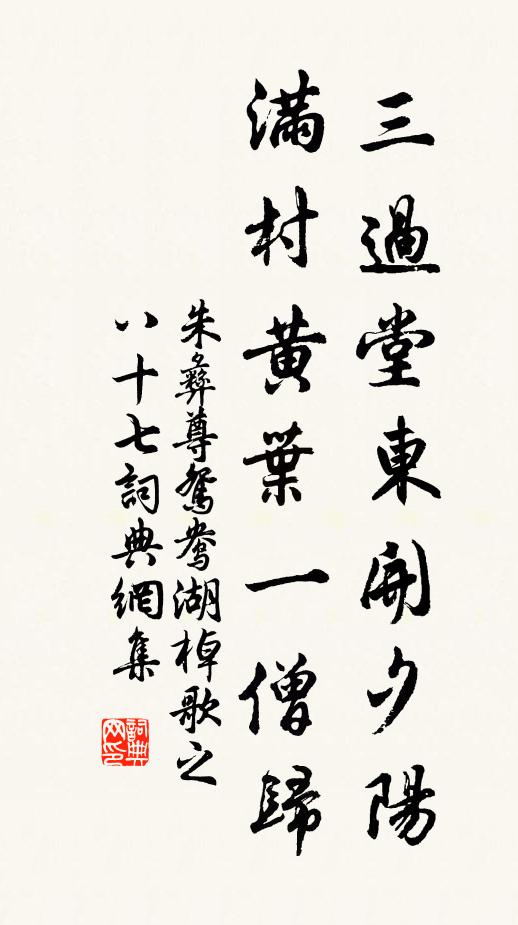 三過堂東開夕陽
滿村黃葉一僧歸
朱彞尊鴛鴦湖棹歌之
八十七詞典網集
詞典
网印